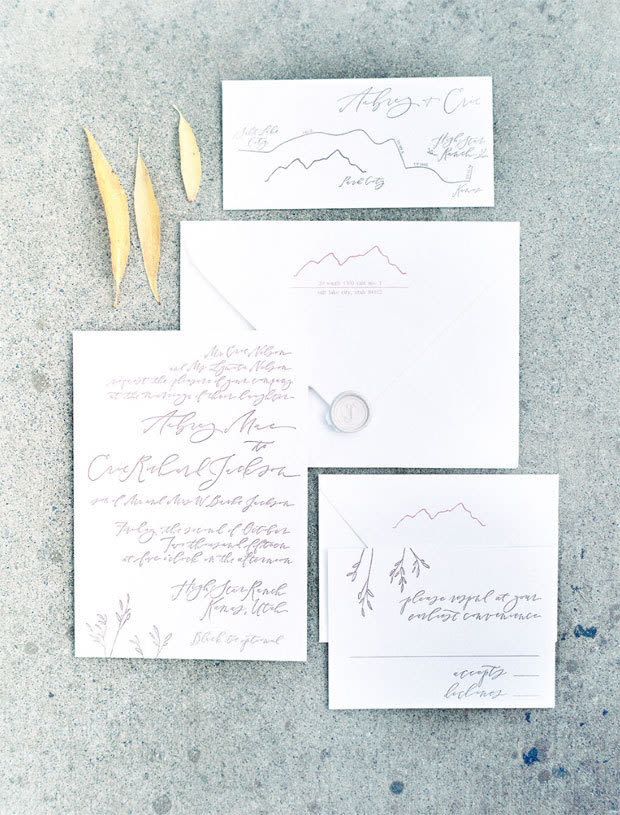 Aubrey + Eric
Salt Lake
City
High Star
Ranch
Park City
Kamas
salt lake city, utah 84102
Mr. Eric Nelson
and Ms. Nelson
request the pleasure of your company
at the marriage of their daughter
Aubrey Mae
to
Eric Richard Jackson
son of Mr. and Mrs. W. Burke Jackson
Friday, the second of October
Two thousand fifteen
at five o'clock in the afternoon
High Star Ranch
Kamas, Utah
Black tie optional
please respond at your
earliest convenience
accepts
declines